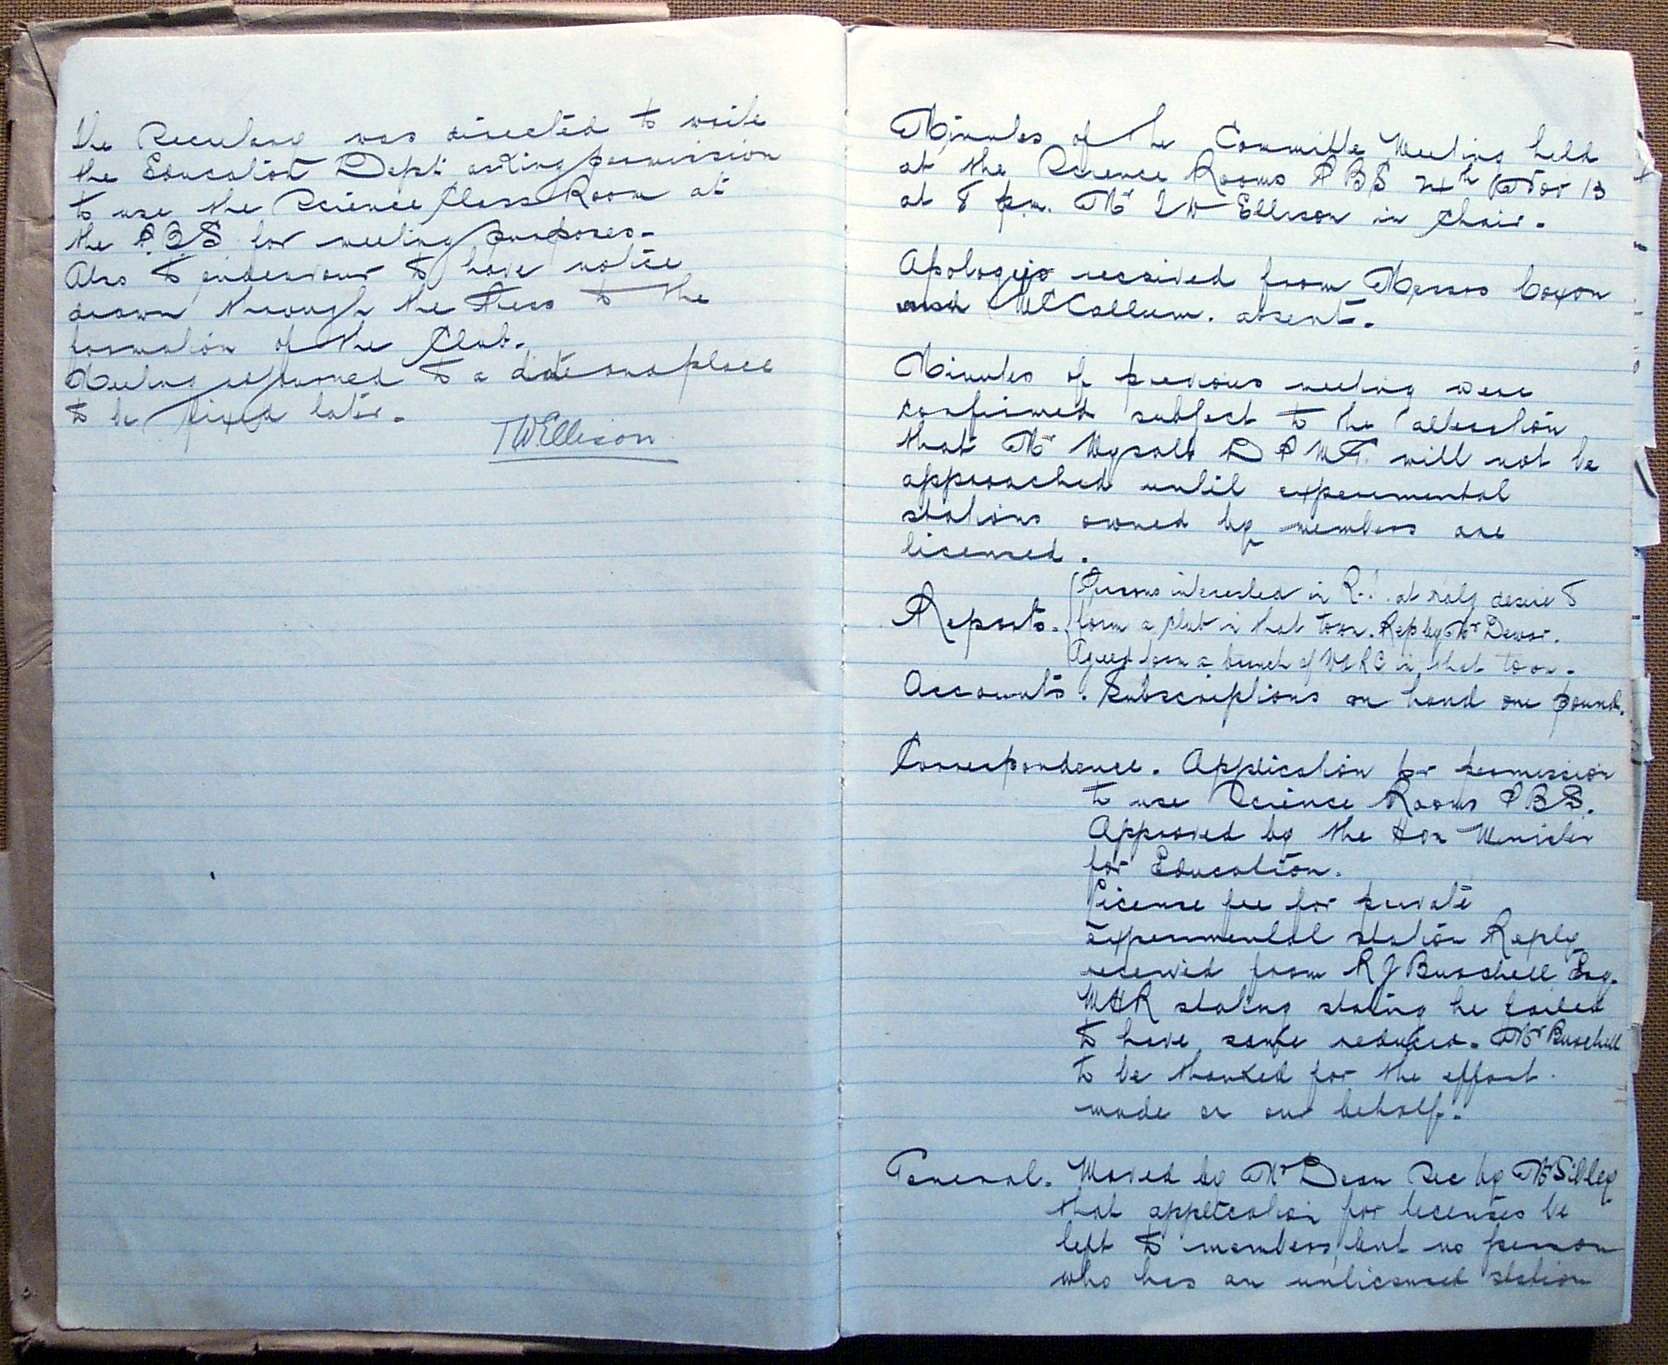 the Secretary was directed to write
the Education Dept asking permission
to use the Science Class Room at
the PBS for meeting purposes.
Also to endeavour to have notice
drawn through the Press to the
formation of the Club.
Meeting adjourned to a date and place
to be fixed later.
TWEllison
Minutes of the Committe Meeting held
at the Science Rooms PBS 24th Nov 13
at 8 pm. Mr T W Ellison in Chair.
Apologies received from Messrs Coxon
and McCallum. absent.
Minutes of previous meeting were
confirmed subject to the alteration
that Mr D P M G. will not be
approached until experemental
stations owned by members are
licensed.
Reports. Persons interested in at desire to
form a club in that town. Rep by Mr
Agreed form a branch of in that town.
Accounts. Subscriptions on hand one pound.
Correspondence. Application for permission
to use Science Rooms PBS.
Approved by the Hon Minister
for Education.
License fee for private
experimental station Reply
received from R J Burchell Esq.
MHR stating stating he failed
to have same reduced. Mr Burchell
to be thanked for the effort
made on our behalf.
General. Moved by Mr Sec by Mr Sibley
that application for licenses be
left to members but no person
who has an unlicensed station